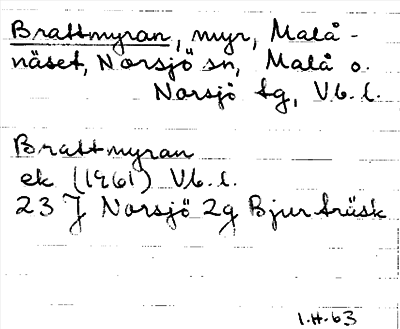 Brattmyran, myr, Malå-
näset, Norsjö sn, Malå o.
Norsjö tg, Vb. l.
Brattmyran
ek (1961) Vb. l.
23 J Norsjö 2g Bjurträsk
1.H.63